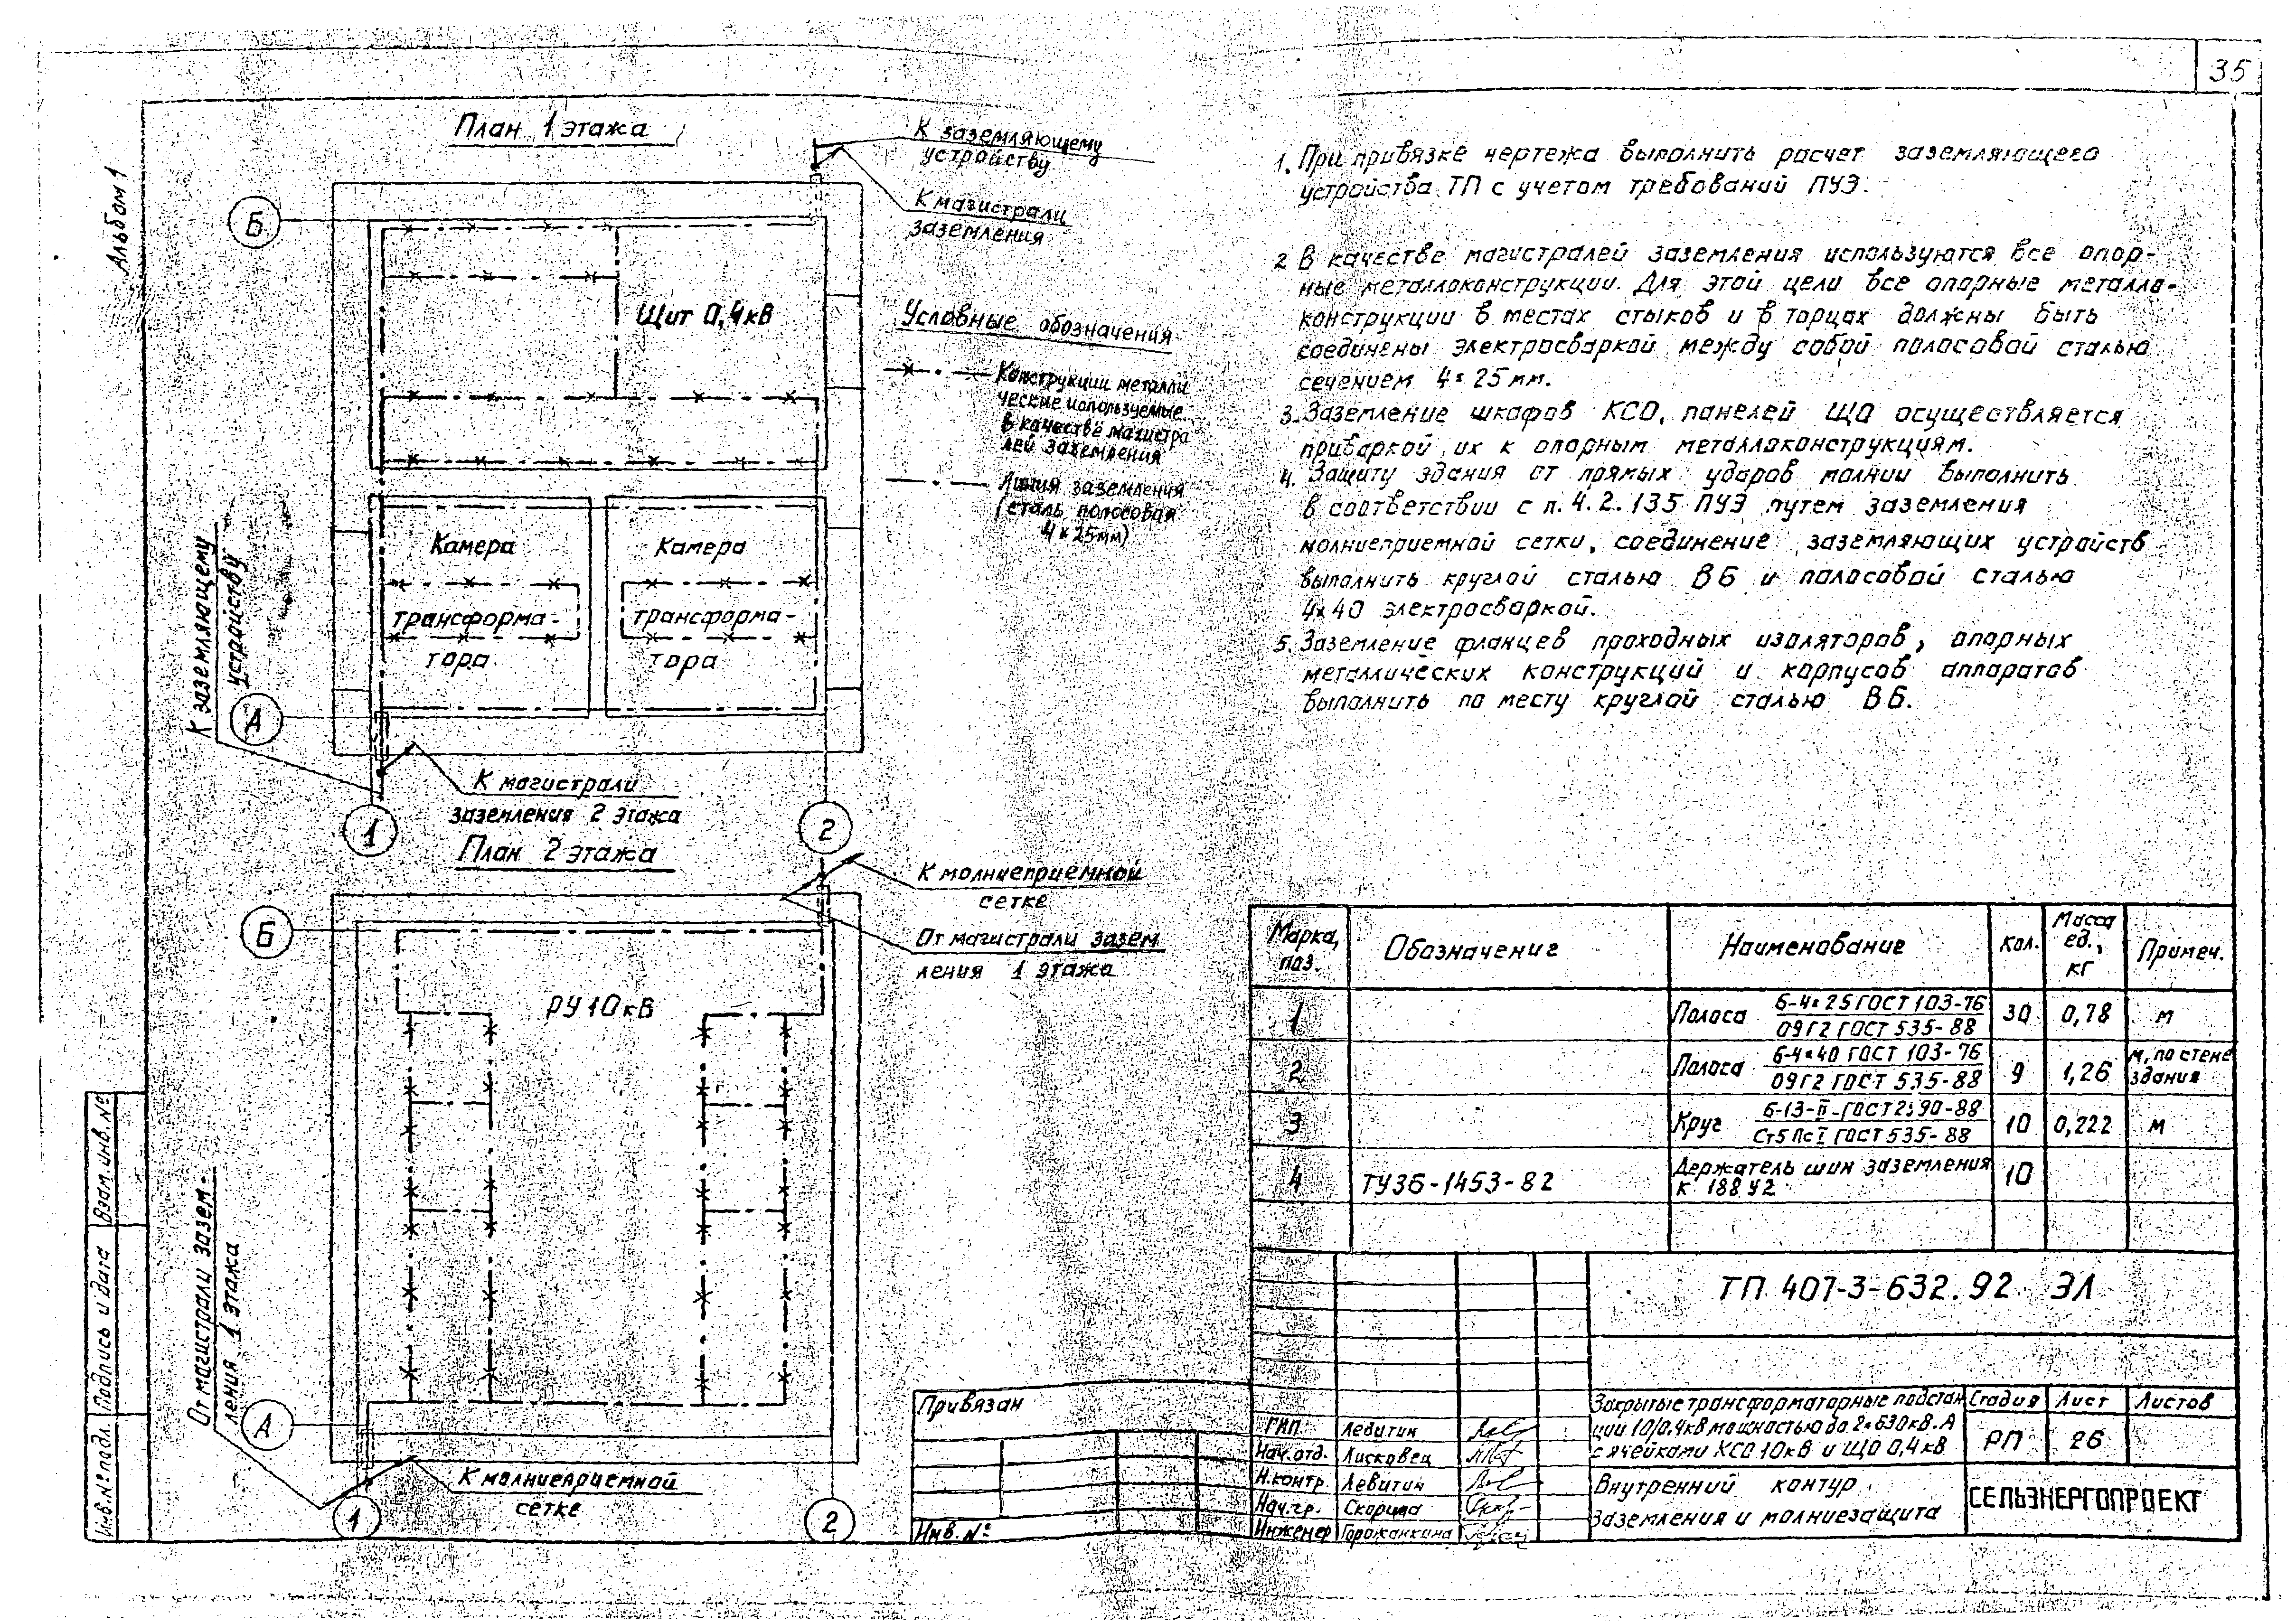 35
Альбом 1
План 1 этажа
К заземляющему
устройству
К магистрали
заземления
Б
Щит 0,4кВ
Условные обозначения
Конструкции металли
ческие используемые
в качестве магистра
лей заземления
Линия заземления
(сталь полосовая
4×25мм)
Камера
трансформа-
тора
Камера
трансформа-
тора
К заземляющему
устройству
А
К магистрали
заземления 2 этажа
1
2
План 2 этажа
К молниеприемной
сетке
От магистрали зазем
ления 1 этажа
Б
РУ 10кВ
От магистрали зазем-
ления 1 этажа
А
К молниеприемной
сетке
1
2
1. При привязке чертежа выполнить расчет заземляющего
устройства ТП с учетом требований ПУЭ.
2 В качестве магистралей заземления используются все опор-
ные металлоконструкции. Для этой цели все опорные металло-
конструкции в местах стыков и в торцах должны быть
соединены электросваркой между собой полосовой сталью
сечением 4×25мм.
3. Заземление шкафов КСО, панелей ЩО осуществляется
приваркой их к опорным металлоконструкциям.
4. Защиту здания от прямых ударов молнии выполнить
в соответствии с п. 4.2.135 ПУЭ путем заземления
молниеприемной сетки, соединение заземляющих устройств
выполнить круглой сталью В6 и полосовой сталью
4×40 электросваркой.
5. Заземление фланцев проходных изоляторов, опорных
металлических конструкций и корпусов аппаратов
выполнить по месту круглой сталью В6.
Марка, поз. Обозначение Наименование Кол. Масса ед., кг Примеч.
1 Полоса Б-4×25 ГОСТ 103-76 30 0,78 м
09Г2 ГОСТ 535-88
2 Полоса Б-4×40 ГОСТ 103-76 9 1,26 м, по стене здания
09Г2 ГОСТ 535-88
3 Круг 10 0,222 м
Ст5 Пс I ГОСТ 535-88
4 ТУ36-1453-82 Держатель шин заземления 10
К 188 У2
ТП 407-3-632.92 ЭЛ
Закрытые трансформаторные подстан
ции 10/0,4кВ мощностью до 2×630кВ.А
с ячейками КСО 10кВ и ЩО 0,4кВ
Стадия Лист Листов
РП 26
Внутренний контур
заземления и молниезащита
СЕЛЬЭНЕРГОПРОЕКТ
Привязан
Инв. №
ГИП Левитин
Нач. отд. Лисковец
Н.контр Левитин
Нач. гр. Скорина
Инженер Горожанкина
Взам. инв. №
Подпись и дата
Инв. № подл